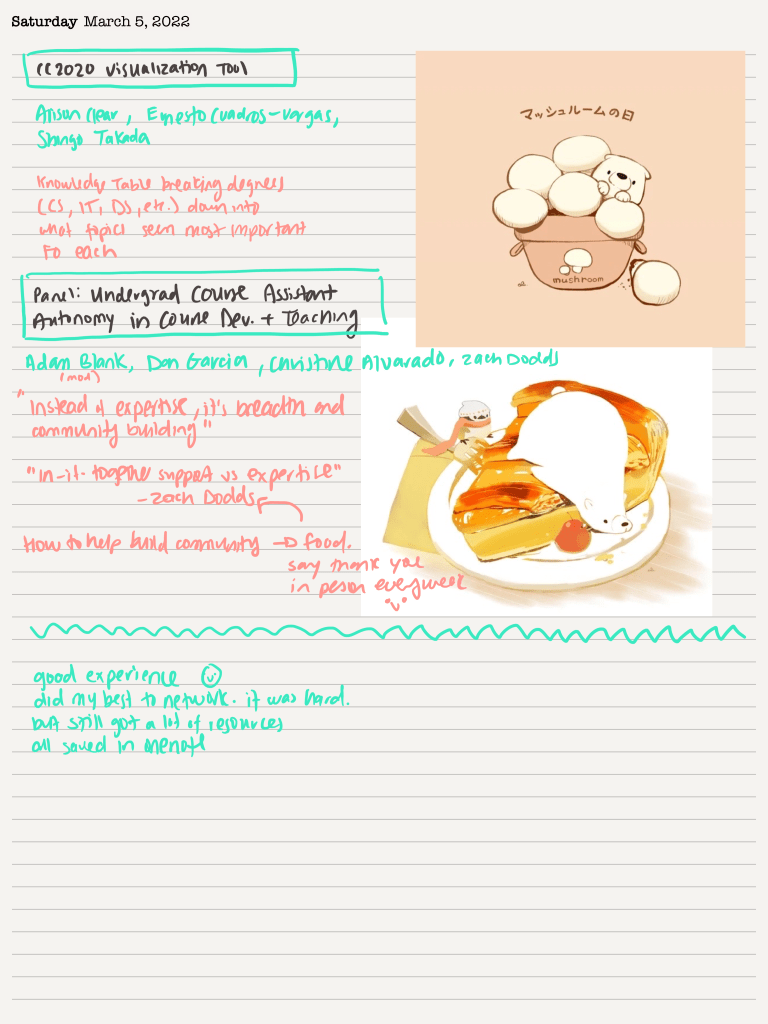 Saturday March 5, 2022
CC2020 Visualization Tool
Alison Clear, Ernesto Cuadros-Vargas,
Shingo Takada
Knowledge Table breaking degrees
(CS, IT, DS, etc.) down into
what topics seem most important
Fo each
マッシュルームの日
mushroom
Panel: Undergrad Course Assistant
Autonomy in Course Dev. + Teaching
Adam Blank, Dan Garcia, Christine Alvarado, Zach Dodds
(mod)
"Instead of expertise, it's breadth and
community building"
"in-it-together support vs expertise"
- Zach Dodds
How to help build community → food.
say thank you
in person every week
good experience
did my best to network. it was hard.
but still got a lot of resources
all saved in